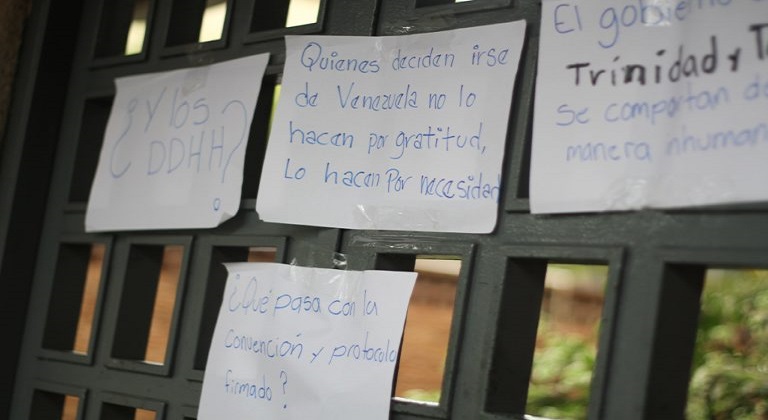 ¿Y los
DDHH?
Quienes deciden irse
de Venezuela no lo
hacen por gratitud,
Lo hacen Por necesidad
El gobierno
Trinidad y T
se comportan de
manera nhuman
¿Qué pasa con la
convención y protocolo
firmado?